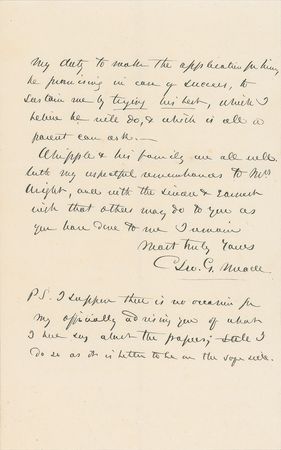 my duty to make the application for him,
he promising in case of success, to
sustain me by trying his best, which I
believe he will do, & which is all a
parent can ask.—
Whipple & his family are all well.
With my respectful remembrances to Mrs
Wright, and with the sincere & earnest
wish that others may do to you as
you have done to me I remain
Most truly yours
Geo. G. Meade
P.S. I suppose there is no occasion for
my officially advising you of what
I have say about the papers; still I
do so as it is better to be on the safe side.